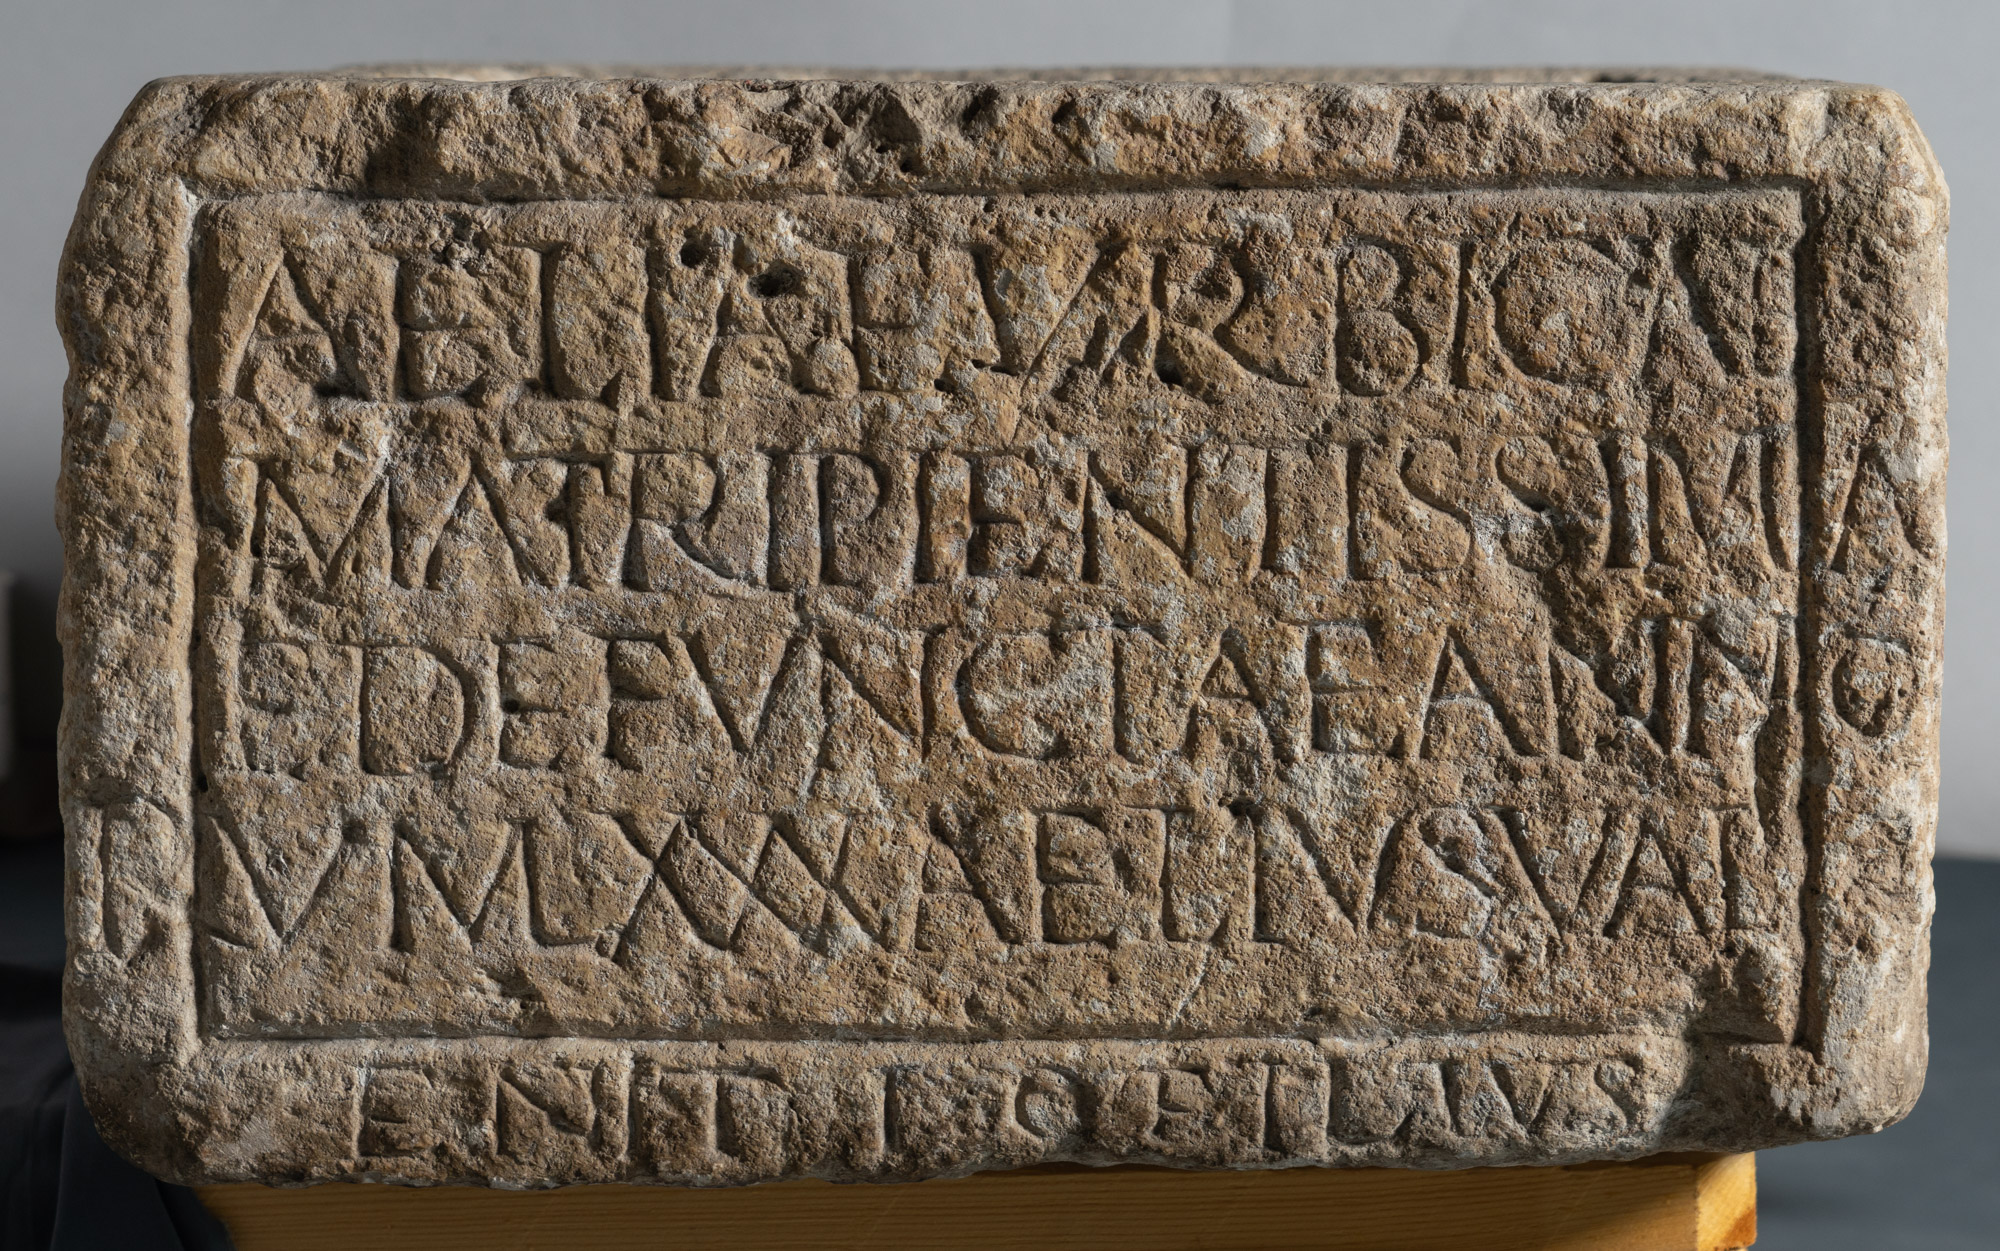 AELIAE VRBICAE
MATRI PIENTISSIMA
E DEFVNCTAE ANNO
RVM XXX AELIVS VAL
ENT